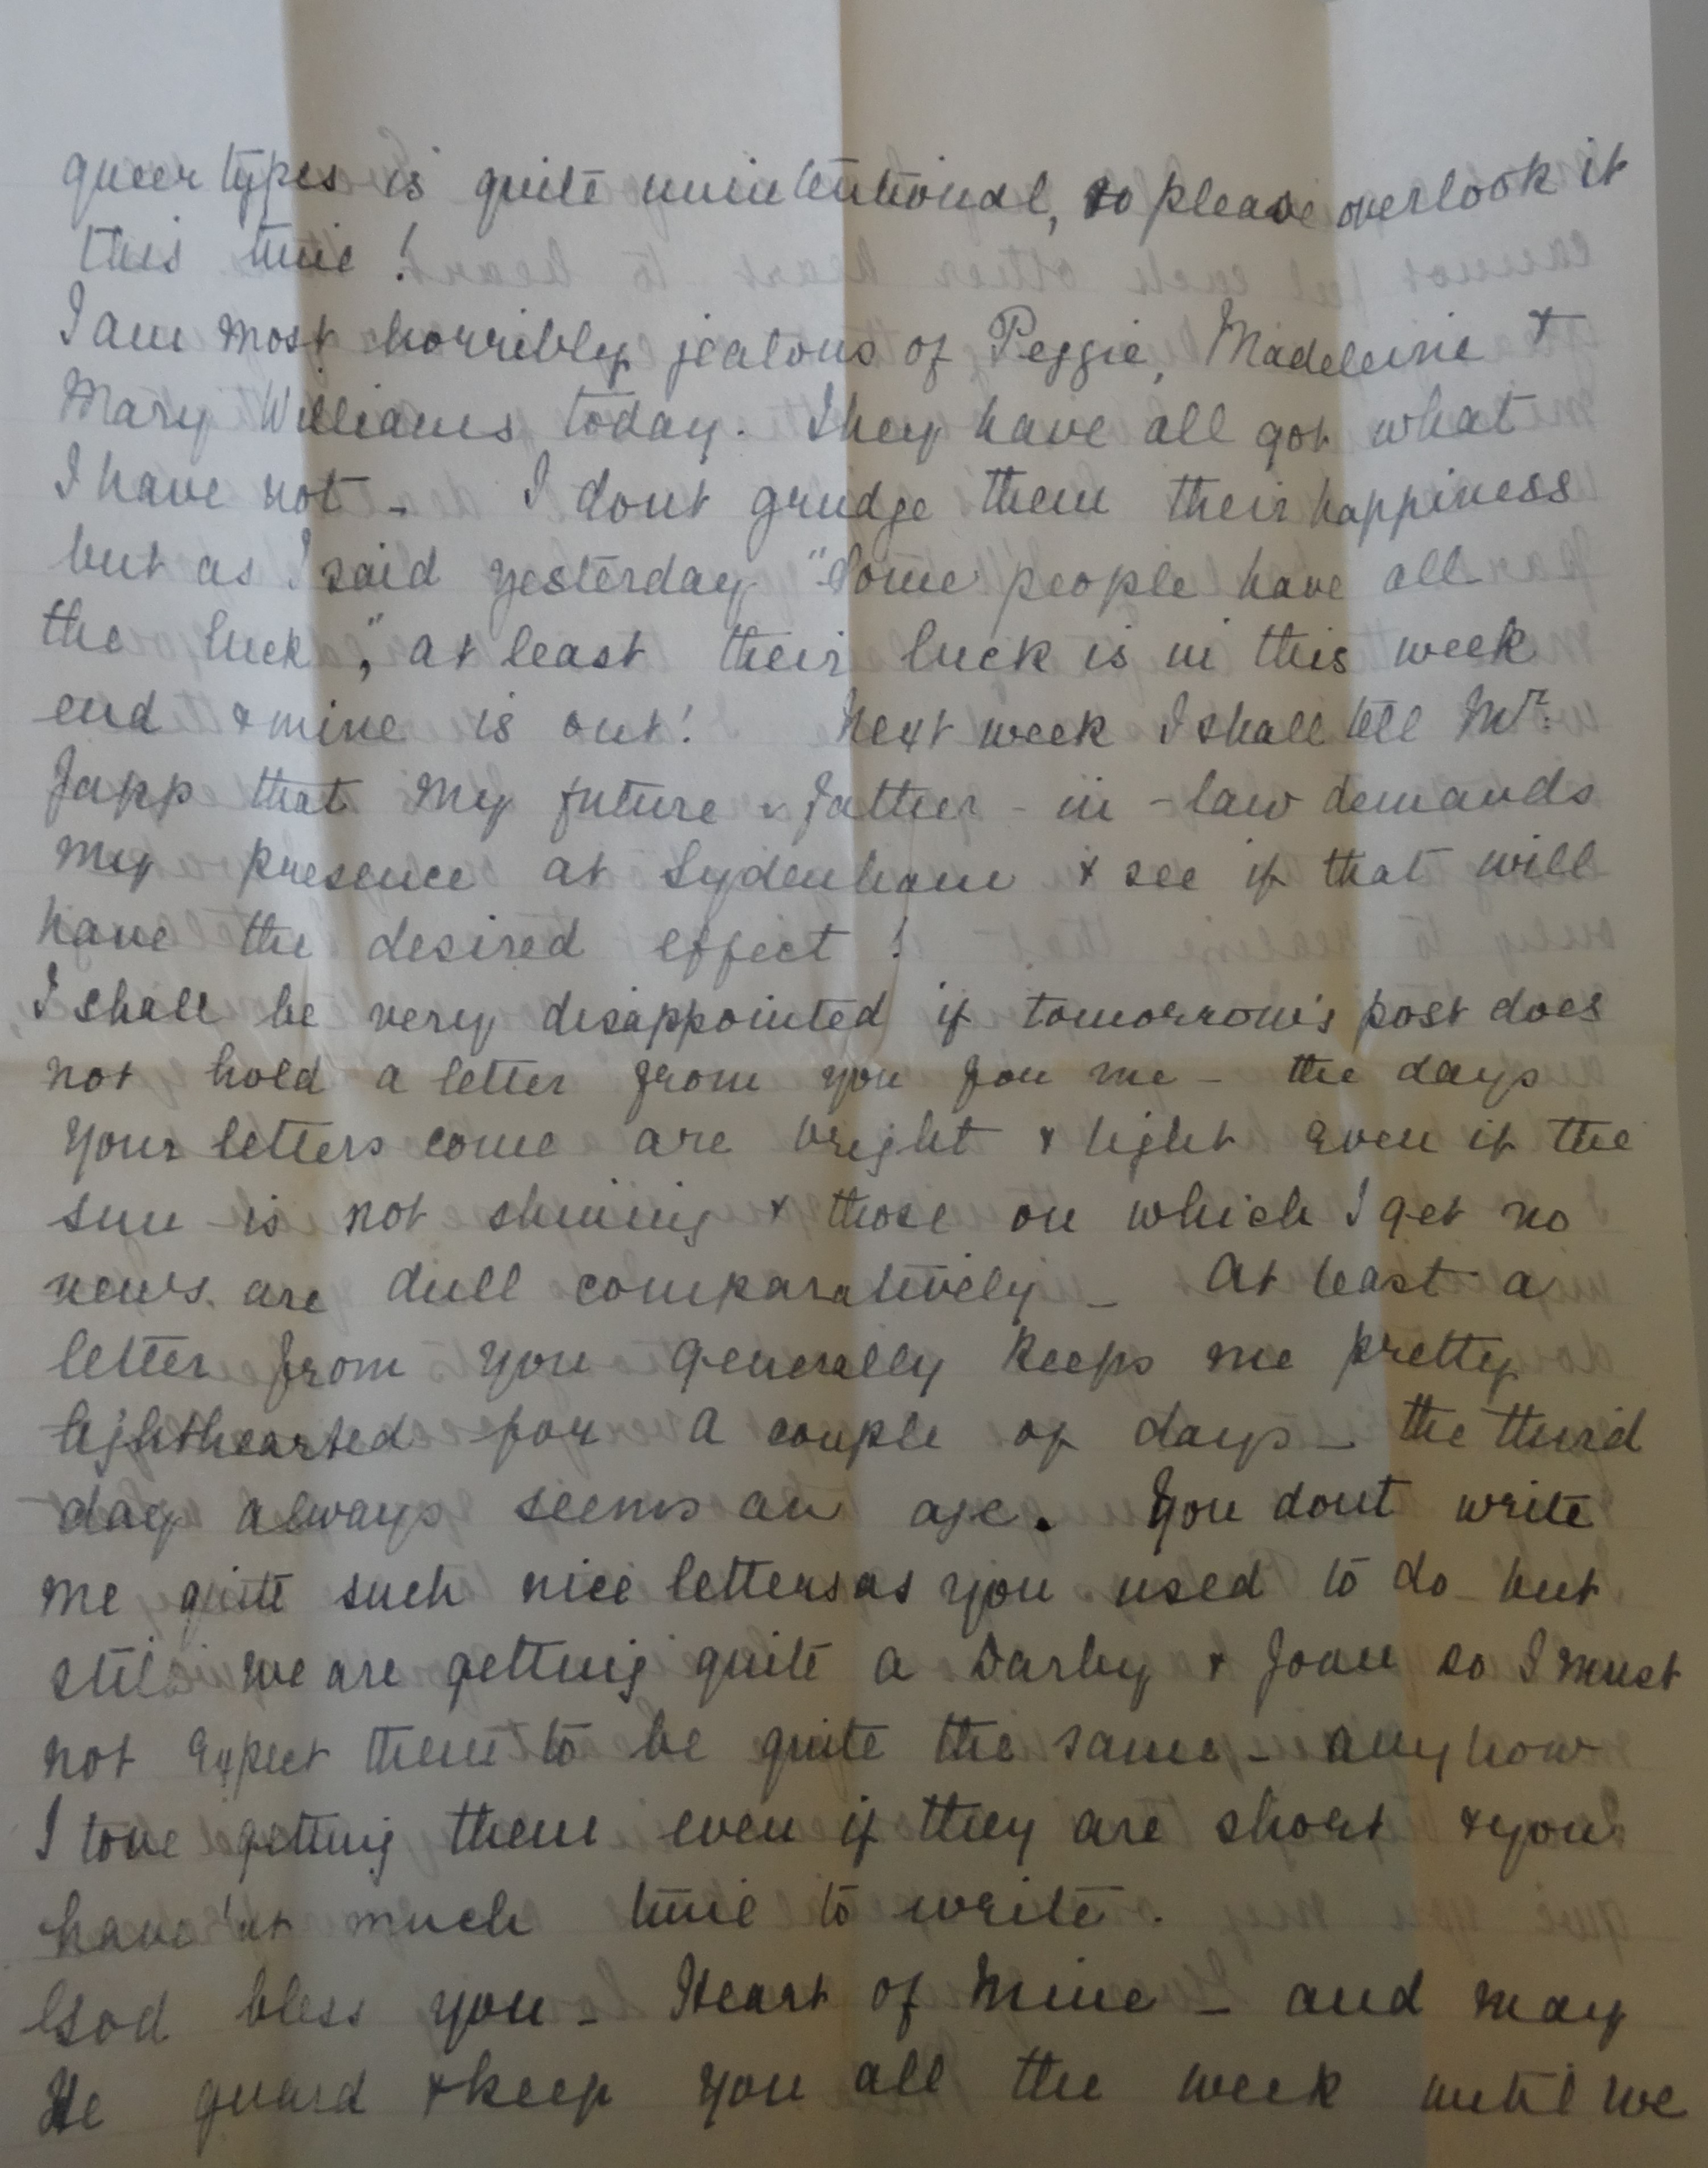 queer types is quite unintentional, so please overlook it
this time !
I am most horribly jealous of Peggie, Madeleine &
Mary Williams today. They have all got what
I have not - I dont grudge them their happiness
but as I said yesterday "Some people have all
the luck", at least their luck is in this week
end & mine is out! Next week I shall tell Mr.
Japp that my future father-in-law demands
my presence at Sydenham & see if that will
have the desired effect !
I shall be very disappointed if tomorrow's post does
not hold a letter from you for me - the days
your letters come are bright & light even if the
sun is not shining & those on which I get no
news are dull comparatively - At least a
letter from you generally keeps me pretty
lighthearted for a couple of days - the third
day always seems an age. You dont write
me quite such nice letters as you used to do but
still we are getting quite a Darby & Joan so I must
not expect them to be quite the same - anyhow
I love getting them even if they are short & you
have'nt much time to write.
God bless you - Heart of Mine - and may
He guard & keep you all the week until we